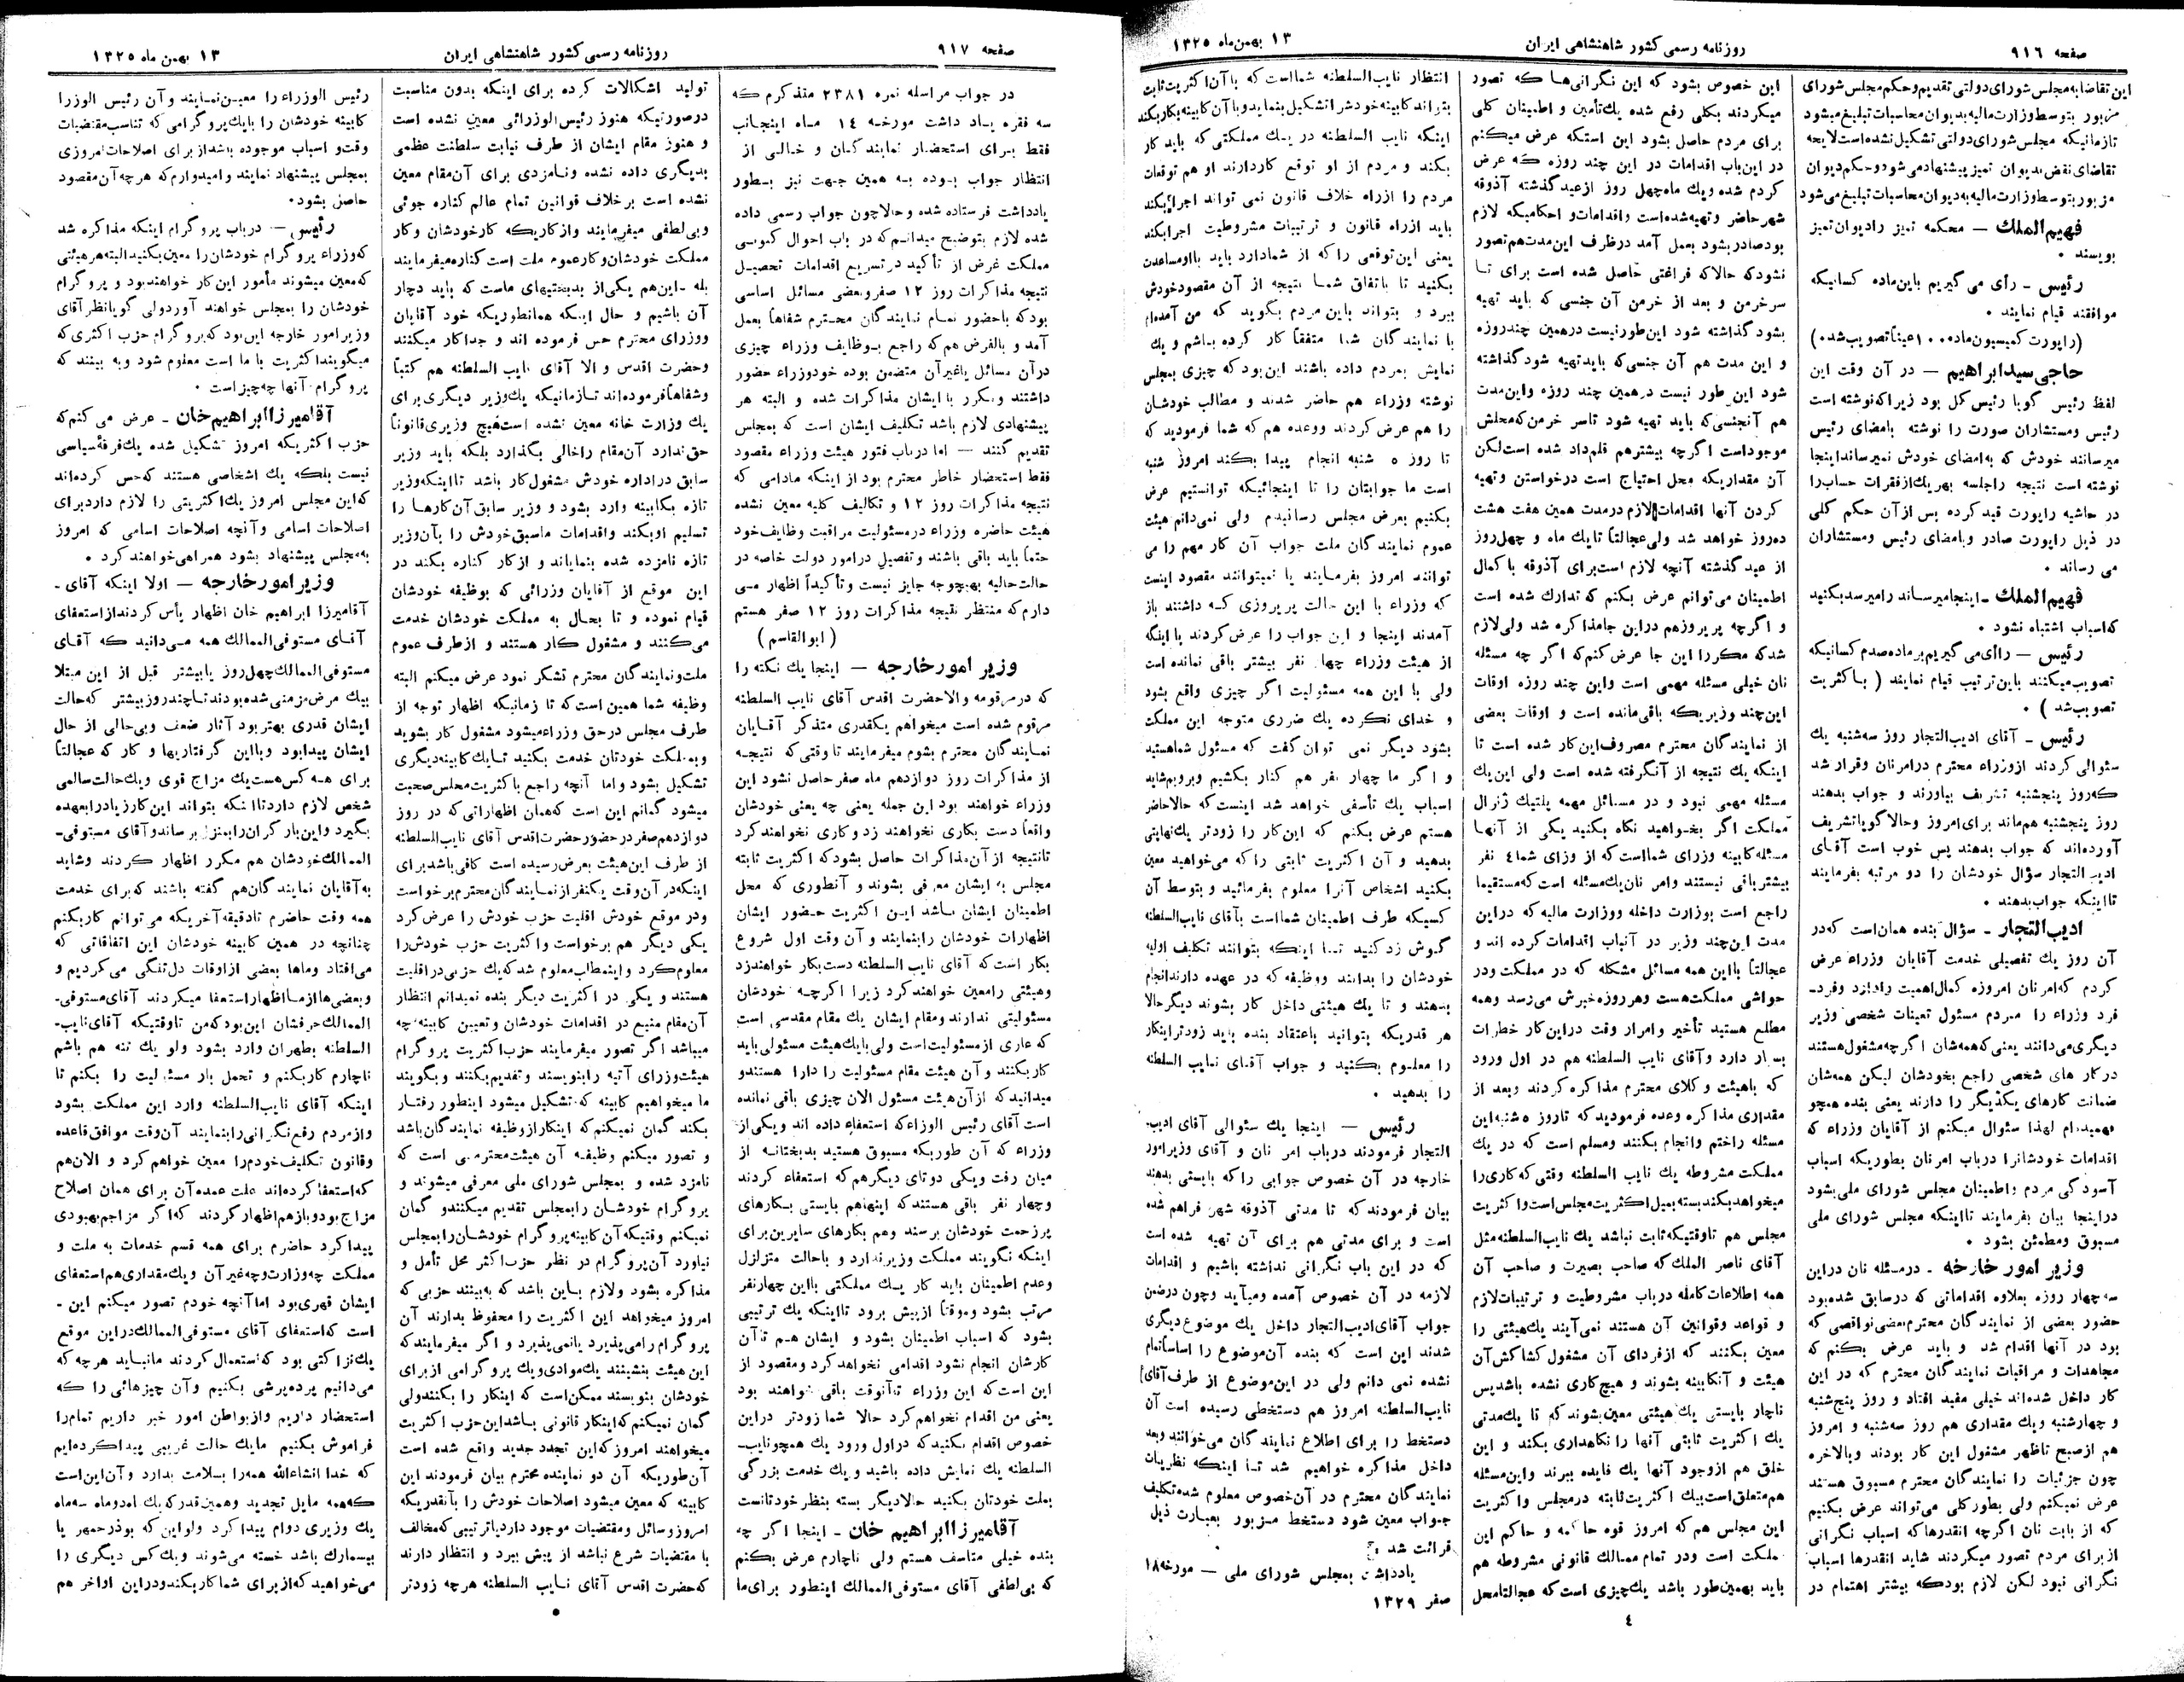 صفحه ۹۱۶
روزنامه رسمی کشور شاهنشاهی ایران
۱۳ بهمن ماه ۱۳۲۵
این تقاضا به مجلس شورای دولتی تقدیم و حکم مجلس شورای
مزبور بتوسط وزارت مالیه بدیوان محاسبات تبلیغ میشود
تازمانیکه مجلس شورای دولتی تشکیل نشده است لایحه
تقاضای نقض بدیوان تمیز پیشنهاد می شود و حکم دیوان
مزبور بتوسط وزارت مالیه به دیوان محاسبات تبلیغ می شود
فهیم الملك – محکمه تمیز را دیوان تمیز
بنویسند .
رئیس – رأی می گیریم باین ماده کسانیکه
موافقند قیام نمایند .
حاجی سید ابراهیم – در آن وقت این
لفظ رئیس گویا رئیس کل بود زیرا که نوشته است
رئیس و مستشاران صورت را نوشته بامضای رئیس
میرسانند خودش که به امضای خودش نمیرساند اینجا
نوشته است نتیجه را جلسه بهر یك از فقرات حساب را
در حاشیه راپورت قید کرده پس از آن حکم کلی
در ذیل راپورت صادر و بامضای رئیس و مستشاران
می رساند .
فهیم الملك – اینجا میرساند را میرسد بکنید
که اسباب اشتباه نشود .
رئیس – رأی می گیریم بر ماده صدم کسانیکه
تصویب میکنند باین ترتیب قیام نمایند ( با کثریت
تصویب شد ) .
رئیس – آقای ادیب التجار روز سه شنبه یك
سئوالی کردند از وزراء محترم در امر نان و قرار شد
که روز پنجشنبه تشریف بیاورند و جواب بدهند
روز پنجشنبه هم ماند برای امروز و حالا گویا تشریف
آورده اند که جواب بدهند پس خوب است آقای
ادیب التجار سؤال خودشان را دو مرتبه بفرمایند
تا اینکه جواب بدهند .
ادیب التجار – سؤال بنده همان است که در
آن روز یك تفصیلی خدمت آقایان وزراء عرض
کردم که امر نان امروزه کمال اهمیت را دارد و فرد
فرد وزراء را مردم مسئول تعینات شخصی وزیر
دیگری می دانند یعنی که همه شان اگرچه مشغول هستند
در کار های شخصی راجع بخودشان لیکن همه شان
ضمانت کارهای یکدیگر را دارند یعنی بنده همچو
فهمیده ام لهذا سئوال میکنم از آقایان وزراء که
اقدامات خودشان را درباب امر نان بطوریکه اسباب
آسودگی مردم و اطمینان مجلس شورای ملی بشود
در اینجا بیان بفرمایند تا اینکه مجلس شورای ملی
مسبوق و مطمئن بشود .
وزیر امور خارجه – در مسئله نان در این
سه چهار روزه بعلاوه اقداماتی که در سابق شده بود
حضور بعضی از نمایندگان محترم بعضی نواقصی که
بود در آنها اقدام شد و باید عرض بکنم که
مجاهدات و مراقبات نمایندگان محترم که در این
کار داخل شده اند خیلی مفید افتاد و روز پنجشنبه
و چهارشنبه و یك مقداری هم روز سه شنبه و امروز
هم از صبح تا ظهر مشغول این کار بودند و بالاخره
چون جزئیات را نمایندگان محترم مسبوق هستند
عرض نمیکنم ولی بطور کلی می تواند عرض بکنیم
که از بابت نان اگرچه انقدرها که اسباب نگرانی
از برای مردم تصور میکردند شاید انقدرها اسباب
نگرانی نبود لکن لازم بود که بیشتر اهتمام در
این خصوص بشود که این نگرانی ها که تصور
میکردند بکلی رفع شده یك تأمین و اطمینان کلی
برای مردم حاصل بشود این استکه عرض میکنم
در این باب اقدامات در این چند روزه که عرض
کردم شده و یك ماه چهل روز از عید گذشته آذوقه
شهر حاضر و تهیه شده است و اقدامات و احکامیکه لازم
بود صادر بشود بعمل آمد در ظرف این مدت هم تصور
نشود که حالا که فراغتی حاصل شده است برای تا
سرخرمن و بعد از خرمن آن جنسی که باید تهیه
بشود گذاشته شود این طور نیست در همین چند روزه
و این مدت هم آن جنسی که باید تهیه شود گذاشته
شود این طور نیست در همین چند روزه و این مدت
هم آنجنسی که باید تهیه شود تاسر خرمن که محلش
موجود است اگرچه بیشترهم قلم داد شده است لکن
آن مقداریکه محل احتیاج است درخواستن و تهیه
کردن آنها اقدامات لازم در مدت همین هفت هشت
ده روز خواهد شد ولی عجالتاً تا یك ماه و چهل روز
از عید گذشته آنچه لازم است برای آذوقه با کمال
اطمینان می توانم عرض بکنم که تدارك شده است
و اگرچه پریروز هم در این جا مذاکره شد ولی لازم
شد که مکرر را این جا عرض کنم که اگر چه مسئله
نان خیلی مسئله مهمی است و این چند روزه اوقات
این چند وزیریکه باقی مانده است و اوقات بعضی
از نمایندگان محترم مصروف این کار شده است تا
اینکه یك نتیجه از آنگرفته شده است ولی این یك
مسئله مهمی نبود و در مسائل مهمه پلتیك ژنرال
مملکت اگر بخواهید نگاه بکنید یکی از آنها
مسئله کابینه وزرای شما است که از وزای شما ٤ نفر
بیشتر باقی نیستند و امر نان یك مسئله است که مستقیما
راجع است بوزارت داخله و وزارت مالیه که در این
مدت این چند وزیر در آنباب اقدامات کرده اند و
عجالتاً با این همه مسائل مشکله که در مملکت و در
حواشی مملکت هست و هر روزه خبرش می رسد و همه
مطلع هستید تأخیر و امرار وقت در این کار خطرات
بسیار دارد و آقای نایب السلطنه هم در اول ورود
که باهیئت وکلای محترم مذاکره کردند و بعد از
مقداری مذاکره وعده فرمودید که تاروز ٥ شنبه این
مسئله را ختم و انجام بکنند و مسلم است که در یك
مملکت مشروطه یك نایب السلطنه وقتی که کاری را
میخواهد بکند بسته بمیل اکثریت مجلس است و اکثریت
مجلس هم تاوقتیکه ثابت نباشد یك نایب السلطنه مثل
آقای ناصر الملك که صاحب بصیرت و صاحب آن
همه اطلاعات کامله درباب مشروطیت و ترتیبات لازم
و قواعد و قوانین آن هستند نمی آیند یك هیئتی را
معین بکنند که از فردای آن مشغول کشاکش آن
هیئت و آنکابینه بشوند و هیچ کاری نشده باشد پس
ناچار بایستی یك هیئتی معین بشوند که تا یك مدتی
یك اکثریت ثابتی آنها را نگاهداری بکند و این
خلق هم از وجود آنها یك فایده ببرند و این مسئله
هم متعلق است بیك اکثریت ثابته در مجلس و اکثریت
این مجلس هم که امروز قوه حاکمه و حاکم این
مملکت است و در تمام ممالك قانونی مشروطه هم
باید بهمین طور باشد یك چیزی است که عجالتا محل
انتظار نایب السلطنه شما است که با آن اکثریت ثابت
بتواند کابینه خودش را تشکیل بنماید و با آن کابینه بکار بکند
اینکه نایب السلطنه در یك مملکتی که باید کار
بکند و مردم از او توقع کار دارند او هم توقعات
مردم را از راه خلاف قانون نمی تواند اجرا بکند
باید از راه قانون و ترتیبات مشروطیت اجرا بکند
یعنی این توقعی را که از شما دارد باید با او مساعدت
بکنید تا باتفاق شما نتیجه از آن مقصود خودش
ببرد و بتواند باین مردم بگوید که من آمده ام
با نمایندگان شما متفقاً کار کرده باشم و یك
نمایش بمردم داده باشند این بود که چیزی بمجلس
نوشته وزراء هم حاضر شدند و مطالب خودشان
را هم عرض کردند و وعده هم که شما فرمودید که
تا روز ٥ شنبه انجام پیدا بکند امروز شنبه
است ما جوابتان را تا اینجائیکه توانستیم عرض
بکنیم بعرض مجلس رسانیدم ولی نمی دانم هیئت
عموم نمایندگان ملت جواب آن کار مهم را می
توانند امروز بفرمایند یا نمیتوانند مقصود اینست
که وزراء با این حالت پریروزی که داشتند باز
آمدند اینجا و این جواب را عرض کردند با اینکه
از هیئت وزراء چهار نفر بیشتر باقی نمانده است
ولی با این همه مسئولیت اگر چیزی واقع بشود
و خدای نکرده یك ضرری متوجه این مملکت
بشود دیگر نمی توان گفت که مسئول شما هستید
و اگر ما چهار نفر هم کنار بکشیم و برویم شاید
اسباب یك تأسفی خواهد شد اینست که حالا حاضر
هستم عرض بکنم که این کار را زودتر یك نهایتی
بدهید و آن اکثریت ثابتی را که می خواهید معین
بکنید اشخاص آنرا معلوم بفرمائید و بتوسط آن
کسیکه طرف اطمینان شما است بآقای نایب السلطنه
گوش زد کنید تا اینکه بتوانند تکلیف اولیه
خودشان را بدانند و وظیفه که در عهده دارند انجام
بدهند و تا یك هیئتی داخل کار بشوند دیگر حالا
هر قدریکه بتوانید باعتقاد بنده باید زودتر اینکار
را معلوم بکنید و جواب آقای نایب السلطنه
را بدهید .
رئیس – اینجا یك سئوالی آقای ادیب
التجار فرمودند درباب امر نان و آقای وزیر امور
خارجه در آن خصوص جوابی را که بایستی بدهند
بیان فرمودند که تا مدتی آذوقه شهر فراهم شده
است و برای مدتی هم برای آن تهیه شده است
که در این باب نگرانی نداشته باشیم و اقدامات
لازمه در آن خصوص آمده و میآید و چون در ضمن
جواب آقای ادیب التجار داخل یك موضوع دیگری
شدند این است که بنده آن موضوع را اساساً تمام
نشده نمی دانم ولی در این موضوع از طرف آقای
نایب السلطنه امروز هم دستخطی رسیده است آن
دستخط را برای اطلاع نمایندگان می خوانند و بعد
داخل مذاکره خواهیم شد تا اینکه نظریات
نمایندگان محترم در آن خصوص معلوم شده تکلیف
جواب معین شود دستخط مزبور بعبارت ذیل
قرائت شد
یادداشت بمجلس شورای ملی – مورخه ۱۸
صفر ۱۳۲۹
٤
صفحه ۹۱۷
روزنامه رسمی کشور شاهنشاهی ایران
۱۳ بهمن ماه ۱۳۲۵
در جواب مراسله نمره ۲۳۸۱ متذکرم که
سه فقره یاد داشت مورخه ١٤ ماه اینجانب
فقط برای استحضار نمایندگان و خالی از
انتظار جواب بوده به همین جهت نیز بطور
یادداشت فرستاده شده و حالا چون جواب رسمی داده
شده لازم بتوضیح میدانم که در باب احوال کنونی
مملکت غرض از تأکید در تسریع اقدامات تحصیل
نتیجه مذاکرات روز ۱۲ صفر و بعضی مسائل اساسی
بود که باحضور تمام نمایندگان محترم شفاهاً بعمل
آمد و بالفرض هم که راجع بوظایف وزراء چیزی
در آن مسائل یا غیر آن متضمن بوده خود وزراء حضور
داشتند و مکرر با ایشان مذاکرات شده و البته هر
پیشنهادی لازم باشد تکلیف ایشان است که بمجلس
تقدیم کنند – اما درباب فتور هیئت وزراء مقصود
فقط استحضار خاطر محترم بود از اینکه مادامی که
نتیجه مذاکرات روز ۱۲ و تکالیف کلیه معین نشده
هیئت حاضره وزراء در مسئولیت مراقبت وظایف خود
حتماً باید باقی باشند و تفصیل در امور دولت خاصه در
حالت حالیه بهیچوجه جایز نیست و تأکیداً اظهار می
دارم که منتظر نتیجه مذاکرات روز ۱۲ صفر هستم
( ابوالقاسم )
وزیر امور خارجه – اینجا یك نکته را
که در مرقومه والاحضرت اقدس آقای نایب السلطنه
مرقوم شده است میخواهم یکقدری متذکر آقایان
نمایندگان محترم بشوم میفرمایند تا وقتی که نتیجه
از مذاکرات روز دوازدهم ماه صفر حاصل نشود این
وزراء خواهند بود این جمله یعنی چه یعنی خودشان
واقعاً دست بکاری نخواهند زد و کاری نخواهند کرد
تا نتیجه از آن مذاکرات حاصل بشود که اکثریت ثابته
مجلس به ایشان معرفی بشوند و آنطوری که محل
اطمینان ایشان باشد این اکثریت حضور ایشان
اظهارات خودشان را بنمایند و آن وقت اول شروع
بکار است که آقای نایب السلطنه دست بکار خواهند زد
و هیئتی را معین خواهند کرد زیرا اگرچه خودشان
مسئولیتی ندارند و مقام ایشان یك مقام مقدسی است
که عاری از مسئولیت است ولی با یك هیئت مسئولی باید
کار بکنند و آن هیئت مقام مسئولیت را دارا هستند و
میدانید که از آن هیئت مسئول الان چیزی باقی نمانده
است آقای رئیس الوزاء که استعفاء داده اند و یکی از
وزراء که آن طوریکه مسبوق هستید بدبختانه از
میان رفت و یکی دو تای دیگر هم که استعفاء کردند
و چهار نفر باقی هستند که اینها هم بایستی بکارهای
پرزحمت خودشان برسند و هم بکارهای سایرین برای
اینکه نگویند مملکت وزیر ندارد و باحالت متزلزل
و عدم اطمینان باید کار یك مملکتی با این چهار نفر
مرتب بشود و موقتاً از پیش برود تا اینکه یك ترتیبی
بشود که اسباب اطمینان بشود و ایشان هم تا آن
کارشان انجام نشود اقدامی نخواهد کرد و مقصود از
این است که این وزراء تا آنوقت باقی خواهند بود
یعنی من اقدام نخواهم کرد حالا شما زودتر در این
خصوص اقدام بکنید که در اول ورود یك همچو نایب
السلطنه یك نمایش داده باشید و یك خدمت بزرگی
بملت خودتان بکنید حالا دیگر بسته بنظر خودتانست
آقا میرزا ابراهیم خان – اینجا اگر چه
بنده خیلی متاسف هستم ولی ناچارم عرض بکنم
که بی لطفی آقای مستوفی الممالك اینطور برای ما
تولید اشکالات کرده برای اینکه بدون مناسبت
در صورتیکه هنوز رئیس الوزرائی معین نشده است
و هنوز مقام ایشان از طرف نیابت سلطنت عظمی
بدیگری داده نشده و نامزدی برای آن مقام معین
نشده است بر خلاف قوانین تمام عالم کناره جوئی
و بی لطفی میفرمایند و از کاریکه کار خودشان و کار
مملکت خودشان و کار عموم ملت است کناره میفرمایند
بله – این هم یکی از بدبختیهای ماست که باید دچار
آن باشیم و حال اینکه همانطوریکه خود آقایان
و وزرای محترم حس فرموده اند و جداکار میکنند
و حضرت اقدس والا آقای نایب السلطنه هم کتباً
و شفاهاً فرموده اند تا زمانیکه یك وزیر دیگری برای
یك وزارت خانه معین نشده است هیچ وزیری قانوناً
حق ندارد آن مقام را خالی بگذارد بلکه باید وزیر
سابق در اداره خودش مشغول کار باشد تا اینکه وزیر
تازه بکابینه وارد بشود و وزیر سابق آن کارها را
تسلیم او بکند و اقدامات ماسبق خودش را بآن وزیر
تازه نامزده شده بنمایاند و از کار کناره بکند در
این موقع از آقایان وزرائی که بوظیفه خودشان
قیام نموده و تا بحال به مملکت خودشان خدمت
می کنند و مشغول کار هستند و از طرف عموم
ملت و نمایندگان محترم تشکر نمود عرض میکنم البته
وظیفه شما همین است که تا زمانیکه اظهار توجه از
طرف مجلس در حق وزراء میشود مشغول کار بشوید
و بمملکت خودتان خدمت بکنید تا یك کابینه دیگری
تشکیل بشود و اما آنچه راجع با کثریت مجلس صحبت
میشود گمانم این است که همان اظهاراتی که در روز
دوازدهم صفر در حضور حضرت اقدس آقای نایب السلطنه
از طرف این هیئت بعرض رسیده است کافی باشد برای
اینکه در آن وقت یکنفر از نمایندگان محترم برخواست
و در موقع خودش اقلیت حزب خودش را عرض کرد
یکی دیگر هم برخواست و اکثریت حزب خودش را
معلوم کرد و اینمطلب معلوم شد که یك حزبی در اقلیت
هستند و یکی در اکثریت دیگر بنده نمیدانم انتظار
آن مقام منیع در اقدامات خودشان و تعیین کابینه چه
میباشد اگر تصور میفرمایند حزب اکثریت پروگرام
هیئت وزرای آتیه را بنویسند و تقدیم بکنند و بگویند
ما میخواهیم کابینه که تشکیل میشود اینطور رفتار
بکند گمان نمیکنم که اینکار از وظیفه نمایندگان باشد
و تصور میکنم وظیفه آن هیئت محترمی است که
نامزد شده و بمجلس شورای ملی معرفی میشوند و
پروگرام خودشان را بمجلس تقدیم میکنند و گمان
نمیکنم وقتیکه آن کابینه پروگرام خودشان را بمجلس
نیاورد آن پروگرام در نظر حزب اکثر محل تأمل و
مذاکره بشود و لازم باین باشد که به بینند حزبی که
امروز میخواهد این اکثریت را محفوظ بدارند آن
پروگرام را می پذیرد یا نمی پذیرد و اگر میفرمایند که
این هیئت بنشینند یك موادی و یك پروگرامی از برای
خودشان بنویسند ممکن است که اینکار را بکنند ولی
گمان نمیکنم که اینکار قانونی باشد این حزب اکثریت
میخواهند امروز که این تجدد جدید واقع شده است
آن طوریکه آن دو نماینده محترم بیان فرمودند این
کابینه که معین میشود اصلاحات خودش را بآنقدریکه
امروز وسائل و مقتضیات موجود دارد باترتیبی که مخالف
با مقتضیات شرع نباشد از پیش ببرد و انتظار دارند
که حضرت اقدس آقای نایب السلطنه هرچه زودتر
رئیس الوزراء را معین نمایند و آن رئیس الوزرا
کابینه خودشان را بایك پروگرامی که تناسب مقتضیات
وقت و اسباب موجوده باشد از برای اصلاحات امروزی
بمجلس پیشنهاد نمایند و امیدوارم که هرچه آن مقصود
حاصل بشود .
رئیس – درباب پروگرام اینکه مذاکره شد
که وزراء پروگرام خودشان را معین بکنید البته هر هیئتی
که معین میشوند مأمور این کار خواهند بود و پروگرام
خودشان را بمجلس خواهند آورد ولی گویا نظر آقای
وزیر امور خارجه این بود که پروگرام حزب اکثری که
میگویند اکثریت با ما است معلوم شود و به بینند که
پروگرام آنها چه چیز است .
آقا میرزا ابراهیم خان – عرض می کنم که
حزب اکثریکه امروز تشکیل شده یك فرقهٔ سیاسی
نیست بلکه یك اشخاصی هستند که حس کرده اند
که این مجلس امروز یك اکثریتی را لازم دارد برای
اصلاحات اساسی و آنچه اصلاحات اساسی که امروز
به مجلس پیشنهاد بشود همراهی خواهند کرد .
وزیر امور خارجه – اولا اینکه آقای
آقامیرزا ابراهیم خان اظهار یأس کردند از استعفای
آقای مستوفی الممالك همه می دانید که آقای
مستوفی الممالك چهل روز یا بیشتر قبل از این مبتلا
بیك مرض مزمنی شده بودند تا چند روز بیشتر که حالت
ایشان قدری بهتر بود آثار ضعف و بی حالی از حال
ایشان پیدا بود و با این گرفتاریها و کار که عجالتاً
برای همه کس هست یك مزاج قوی و یك حالت سالمی
شخص لازم دارد تا اینکه بتواند این کار زیاد را بعهده
بگیرد و این بار گران را بمنزل برساند و آقای مستوفی
الممالك خودشان هم مکرر اظهار کردند و شاید
به آقایان نمایندگان هم گفته باشند که برای خدمت
همه وقت حاضرم تا دقیقه آخریکه می توانم کار بکنم
چنانچه در همین کابینه خودشان این اتفاقاتی که
می افتاد و ماها بعضی از اوقات دل تنگی می کردیم و
و بعضی ها از ما اظهار استعفا میکردند آقای مستوفی
الممالك حرفشان این بود که من تا وقتیکه آقای نایب
السلطنه بطهران وارد بشود ولو یك تنه هم باشم
ناچارم کار بکنم و تحمل بار مسئولیت را بکنم تا
اینکه آقای نایب السلطنه وارد این مملکت بشود
و از مردم رفع نگرانی را بنمایند آن وقت موافق قاعده
و قانون تکلیف خودم را معین خواهم کرد و الان هم
که استعفا کرده اند علت عمده آن برای همان اصلاح
مزاج بود و باز هم اظهار کردند که اگر مزاجم بهبودی
پیدا کرد حاضرم برای همه قسم خدمات به ملت و
مملکت چه وزارت و چه غیر آن و یك مقداری هم استعفای
ایشان قهری بود اما آنچه خودم تصور میکنم این
است که استعفای آقای مستوفی الممالك در این موقع
یك نزاکتی بود که استعمال کردند ما نباید هرچه که
می دانیم پرده پوشی بکنیم و آن چیزهائی را که
استحضار داریم و از بواطن امور خبر داریم تمام را
فراموش بکنیم ما یك حالت غریبی پیدا کرده ایم
که خدا انشاءالله همه را بسلامت بدارد و آن این است
که همه مایل تجدید و همین قدر که یك امد و ماه سه ماه
یك وزیری دوام پیدا کرد ولو این که بوذرجمهر یا
بیسمارك باشد خسته می شوند و یك کس دیگری را
می خواهید که از برای شما کار بکند و در این اواخر هم